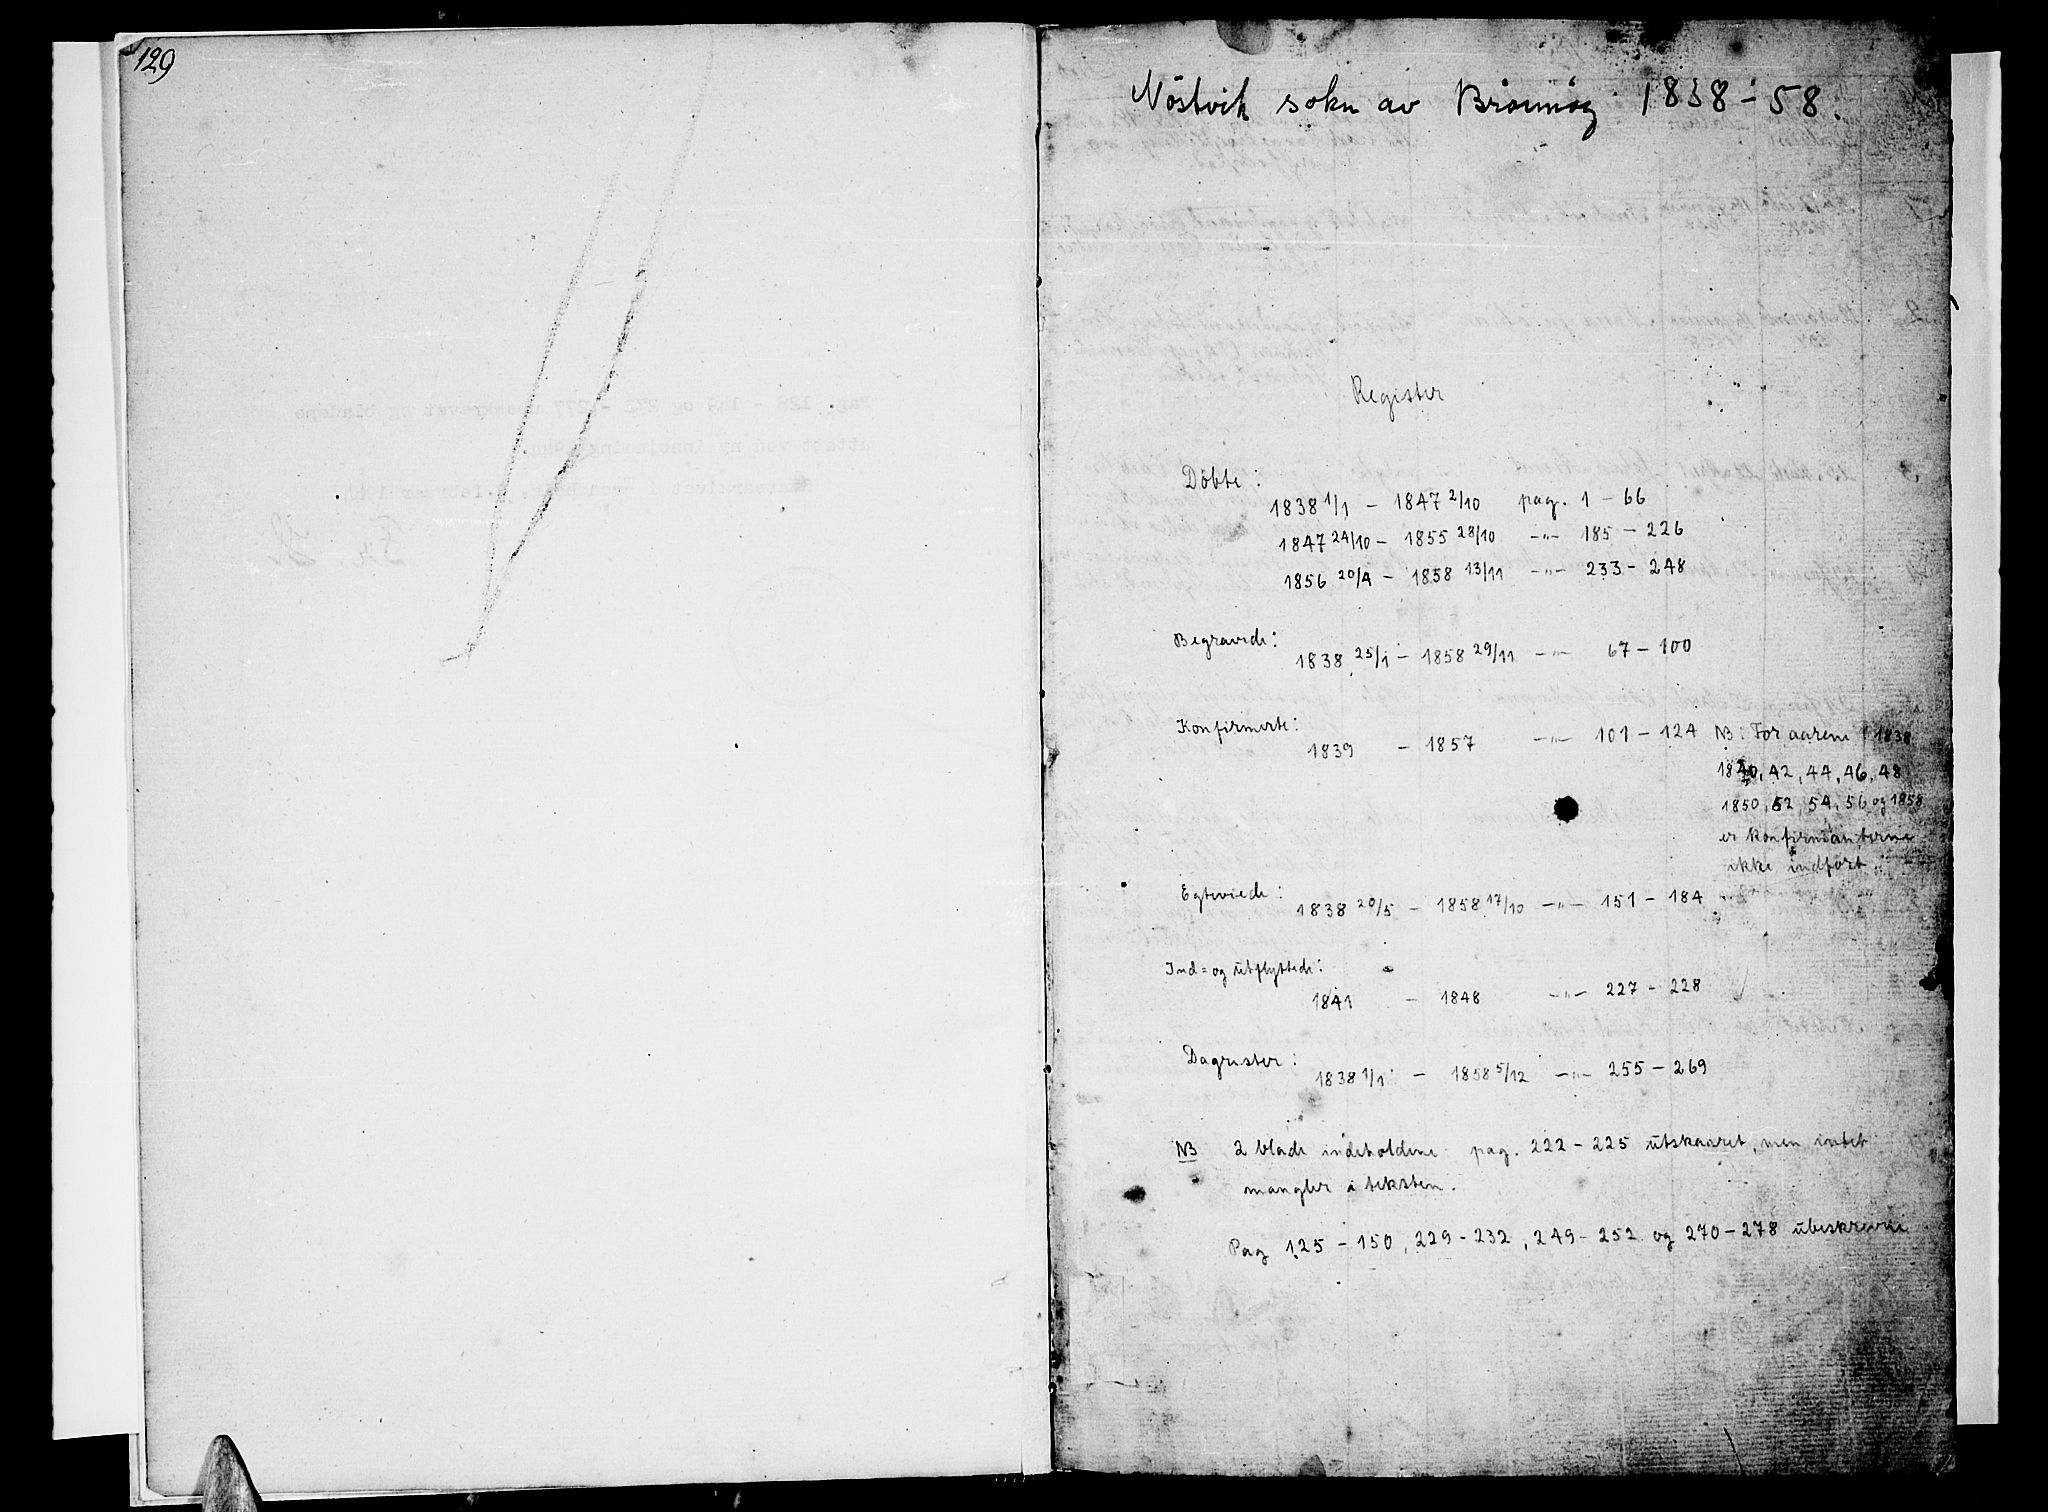 129
Nöstvik sokn av Brönnöy 1838-58.
Register
Döbte:
1838 1/1 - 1847 2/10 pag. 1 - 66
1847 24/10 - 1855 28/10 -"- 185 - 226
1856 20/4 - 1858 13/11 -"- 233 - 248
Begravede:
1838 25/1 - 1858 29/11 -"- 67 - 100
Konfirmerte:
1839 - 1857 -"- 101 - 124
NB: For aarene 1838
1840, 42, 44, 46, 48
1850, 52, 54, 56 og 1858
er konfirmanterne
ikke indfört.
Egteviede:
1838 20/5 - 1858 17/10 -"- 151 - 184
Ind= og utflyttede:
1841 - 1848 -"- 227 - 228
Dagrister:
1838 1/1 - 1858 5/12 -"- 255 - 269
NB 2 blade indeholdene pag. 222 - 225 utskaaret, men intet
mangler i teksten.
Pag 125 - 150, 229 - 232, 249 - 252 og 270 - 278 ubeskrevne